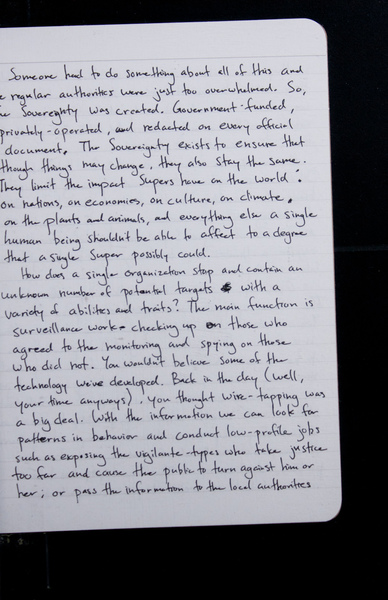 Someone had to do something about all of this and
regular authorities were just too overwhelmed. So,
Sovereignty was created. Government-funded,
privately-operated, and redacted on every official
document. The Sovereignty exists to ensure that
though things may change, they also stay the same.
They limit the impact Supers have on the world:
on nations, on economies, on culture, on climate,
on the plants and animals, and everything else a single
human being shouldn't be able to affect to a degree
that a single Super possibly could.
How does a single organization stop and contain an
unknown number of potential targets with a
variety of abilities and traits? The main function is
surveillance work - checking up on those who
agreed to the monitoring and spying on those
who did not. You wouldn't believe some of the
technology we've developed. Back in the day (well,
your time anyways), you thought wire-tapping was
a big deal. With the information we can look for
patterns in behavior and conduct low-profile jobs
such as exposing the vigilante-types who take justice
too far and cause the public to turn against him or
her; or pass the information to the local authorities